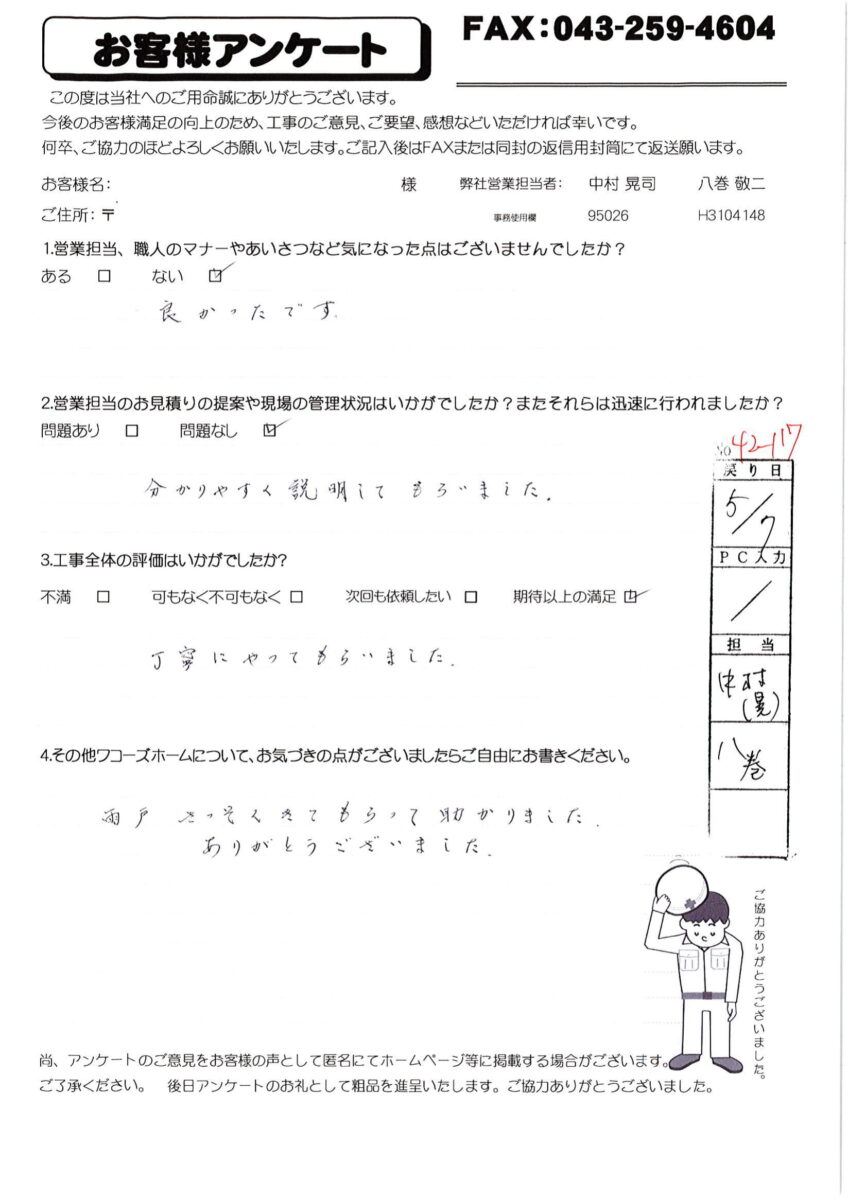 お客様アンケート
FAX:043-259-4604
この度は当社へのご用命誠にありがとうございます。
今後のお客様満足の向上のため、工事のご意見、ご要望、感想などいただければ幸いです。
何卒、ご協力のほどよろしくお願いいたします。ご記入後はFAXまたは同封の返信用封筒にて返送願います。
お客様名: 様 弊社営業担当者: 中村 晃司 八巻 敬二
ご住所:〒 事務使用欄 95026 H3104148
1.営業担当、職人のマナーやあいさつなど気になった点はございませんでしたか?
ある □ ない ☑
良かったです.
2.営業担当のお見積りの提案や現場の管理状況はいかがでしたか?またそれらは迅速に行われましたか?
問題あり □ 問題なし ☑
分かりやすく説明してもらいました.
3.工事全体の評価はいかがでしたか?
不満 □ 可もなく不可もなく □ 次回も依頼したい □ 期待以上の満足 ☑
丁寧にやってもらいました.
4.その他ワコーズホームについて、お気づきの点がございましたらご自由にお書きください。
雨戸 さっそくきてもらって助かりました.
ありがとうございました.
No 42-117
戻り日
5/7
PC入力
/
担当
中村
(晃)
八巻
ご協力ありがとうございました。
尚、アンケートのご意見をお客様の声として匿名にてホームページ等に掲載する場合がございます。
ご了承ください。 後日アンケートのお礼として粗品を進呈いたします。ご協力ありがとうございました。